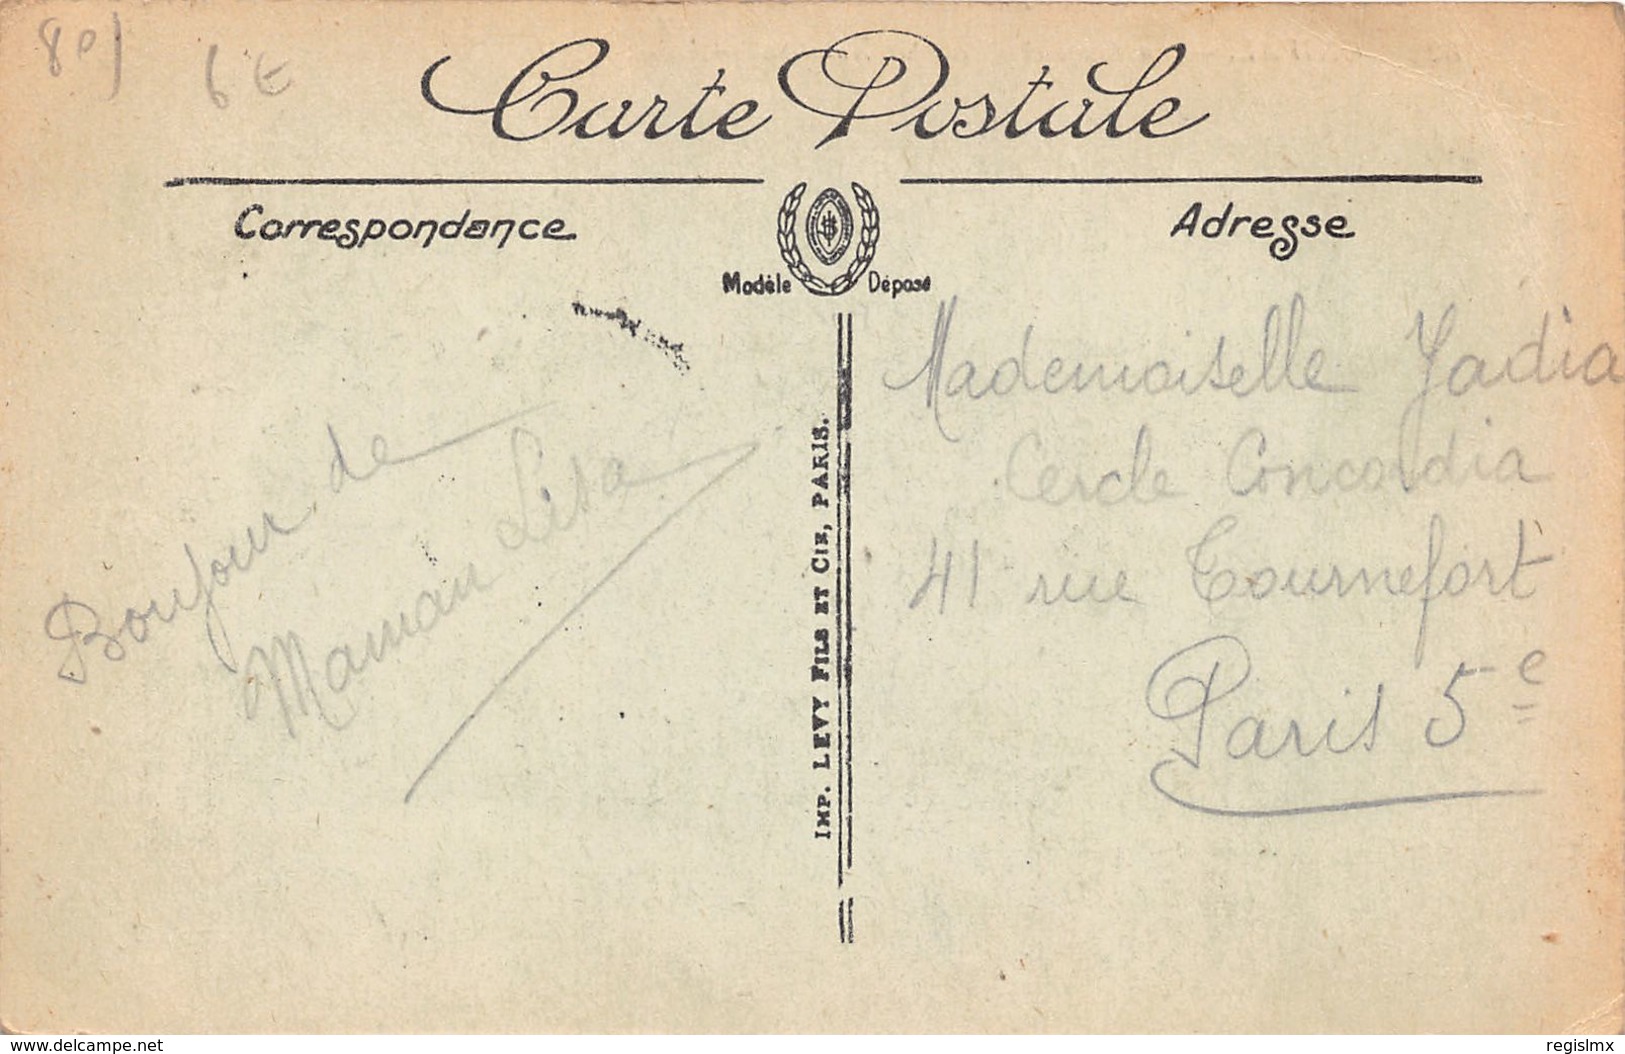 80)
6€
Carte Postale
Correspondance
Adresse
Modèle Déposé
Bonjour de
Maman Lisa
IMP. LEVY FILS ET CIE, PARIS.
Mademoiselle Yadia
Cercle Concordia
41 rue Tournefort
Paris 5e
www.delcampe.net
regislmx